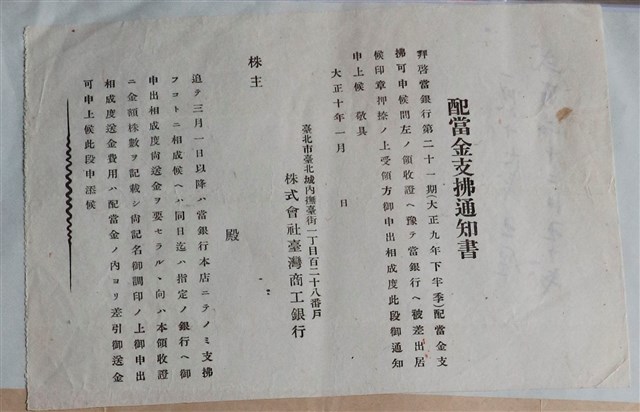 配當金支拂通知書
拜啓當銀行第二十一期(大正九年下半季)配當金支
拂可申候間左ノ領收證ヘ豫テ當銀行ヘ被差出居
候印章押捺ノ上受領方御申出相成度此段御通知
申上候 敬具
大正十年一月 日
臺北市臺北城內撫臺街一丁目百二十八番戶
株式會社臺灣商工銀行
株主
殿
追テ三月一日以降ハ當銀行本店ニテノミ支拂
フコトニ相成候ヘハ同日迄ハ指定ノ銀行ヘ御
申出相成度尙送金ヲ要セラルヽ向ハ本領收證
ニ金額株數ヲ記載シ尙記名御調印ノ上御申出
相成度送金費用ハ配當金ノ內ヨリ差引御送金
可申上候此段申添候